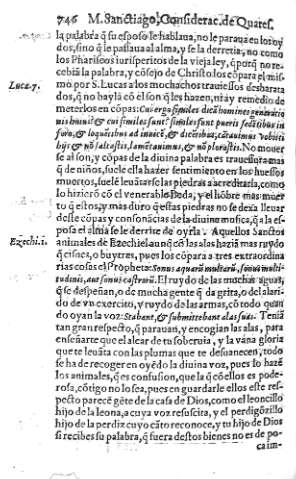 746 M. Sanctiago, Considerac. de Quares.
la palabra q̃ su esposo le hablaua, no le paraua en los oy
dos, sino q̃ le passaua al alma, y se la derretia, no como
los Phariseos iurisperitos de la vieja ley, q̃ porq̃ no re-
cebiã la palabra, y cõsejo de Christo los cõpara el mis-
Luca. 7.
mo por S. Lucas a los mochachos trauiessos desbarata
dos, q̃ no baylã cõ el son q̃ les hazen, ni ay remedio de
meterlos en cõpas: Cui ergo similes dicã homines generatio
nis huius & cui similes sunt: similes sunt pueris sedētibus in
foro, & loquētibus ad inuicē, & dicētibus, cātauimus vobis ti
bijs & nō saltastis, lamētauimus, & nō plorastis. No mouer
se al son, y cõpas de la diuina palabra es trauessura mas
q̃ de niños, suele ella hazer sentimiento en los huessos
muertos, suelē leuãtarse las piedras a acreditarla, como
lo hizierõ cõ el venerable Beda, y el hõbre mas muer
to q̃ estos, y mas duro q̃ estas piedras no se dexa lleuar
deste cõpas, y consonãcias de la diuina musica, q̃ a la es-
posa el alma se le derrite de oyrla. Aquellos Sanctos
Ezechi. 1.
animales de Ezechiel aunq̃ cõ las alas haziã mas ruydo
q̃ cisnes, o buytres, pues los cõpara a tres extraordina
rias cosas el Propheta: Sonus aquarū multarū, sonus multi
tudinis, aut sonus castrorū. El ruydo de las muchas aguas,
q̃ se despeñan, o de mucha gente q̃ da grita, o del alari-
do de vn exercito, y ruydo de las armas, cõ todo quan
do oyan la voz: Stabant, & submittebant alas suas. Teniã
tan gran respecto, q̃ parauan, y encogian las alas, para
enseñarte que el alçar de tu soberuia, y la vana gloria
que te leuãta con las plumas que te desuanecen, todo
se ha de recoger en oyēdo la diuina voz, pues lo hazē
los animales, q̃ es confusion, que la q̃ cõ ellos es pode-
rosa, cõtigo no lo sea, pues en guardarle ellos este res-
pecto parecē gēte de la casa de Dios, como el leoncillo
hijo de la leona, a cuya voz resuscita, y el perdigõzillo
hijo de la perdiz cuyo cãto reconoce, y tu hijo de Dios
si recibes su palabra, q̃ fuera destos bienes no es de po-
ca im-